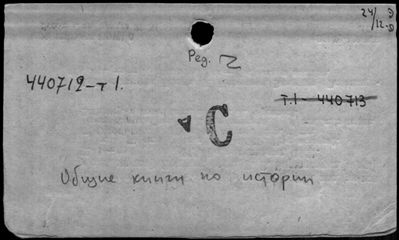 24/
12-
Ред.
440712-т1.
т.1 - 440713
С
Общие книги по истории